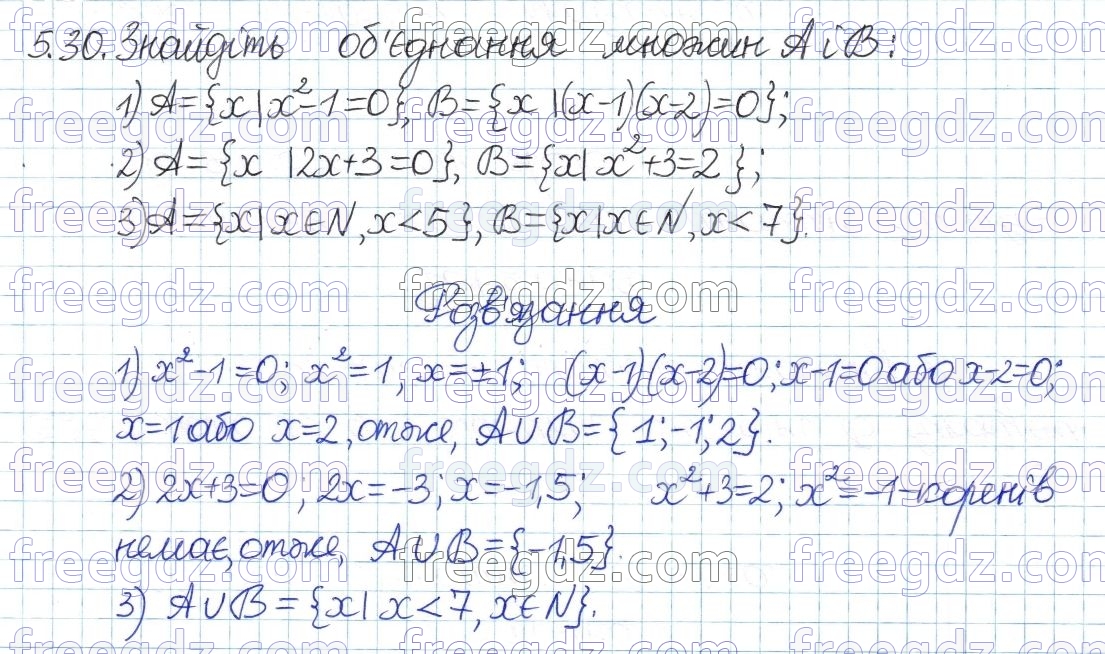 5.30. Знайдіть об'єднання множин A і B:
1) A={x|x²-1=0}, B={x|(x-1)(x-2)=0};
2) A={x |2x+3=0}, B={x|x²+3=2};
3) A={x|x∈N, x<5}, B={x|x∈N, x<7}.
Розв'язання
1) x²-1=0; x²=1, x=±1; (x-1)(x-2)=0; x-1=0 або x-2=0;
x=1 або x=2, отже, A∪B={1;-1;2}.
2) 2x+3=0; 2x=-3; x=-1,5; x²+3=2; x²=-1-коренів
немає, отже, A∪B={-1,5}.
3) A∪B={x| x<7, x∈N}.
freegdz.com